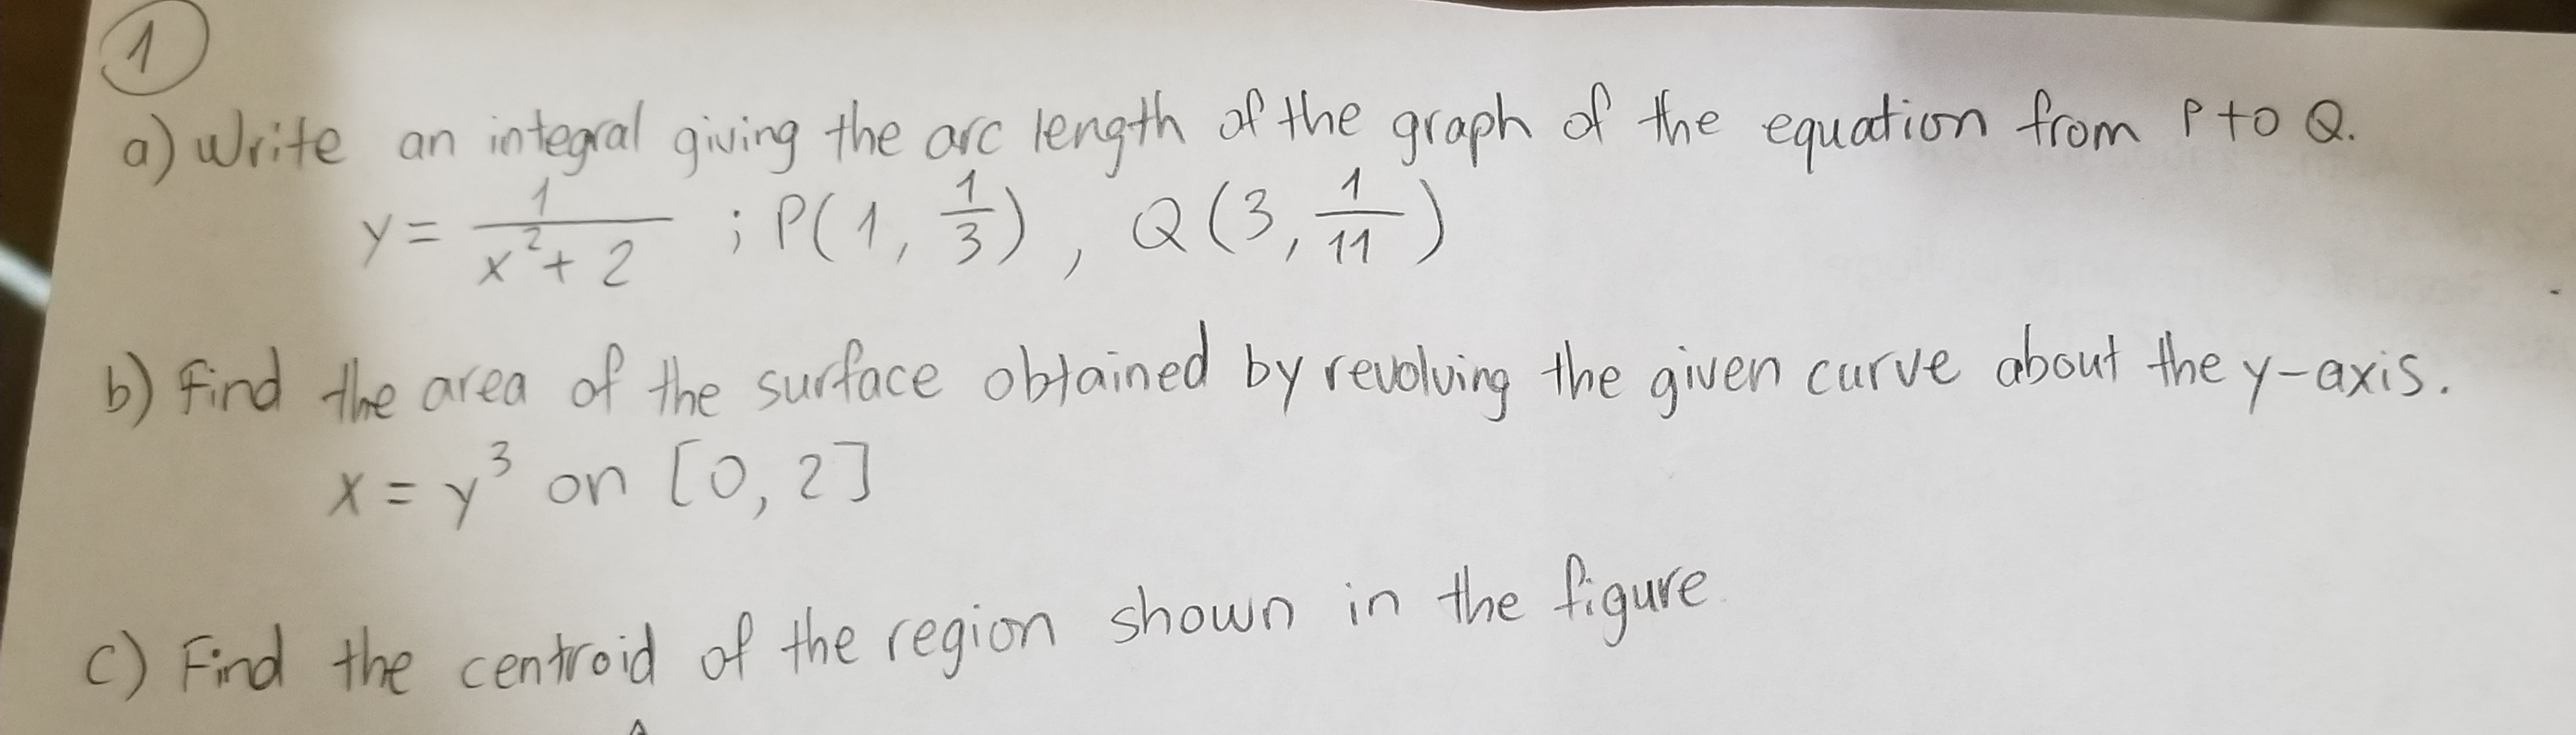 1
a) Write an integral giving the arc length of the graph of the equation from P to Q.
y = 1/(x²+2) ; P(1, 1/3), Q(3, 1/11)
b) Find the area of the surface obtained by revolving the given curve about the y-axis.
x = y³ on [0, 2]
c) Find the centroid of the region shown in the figure